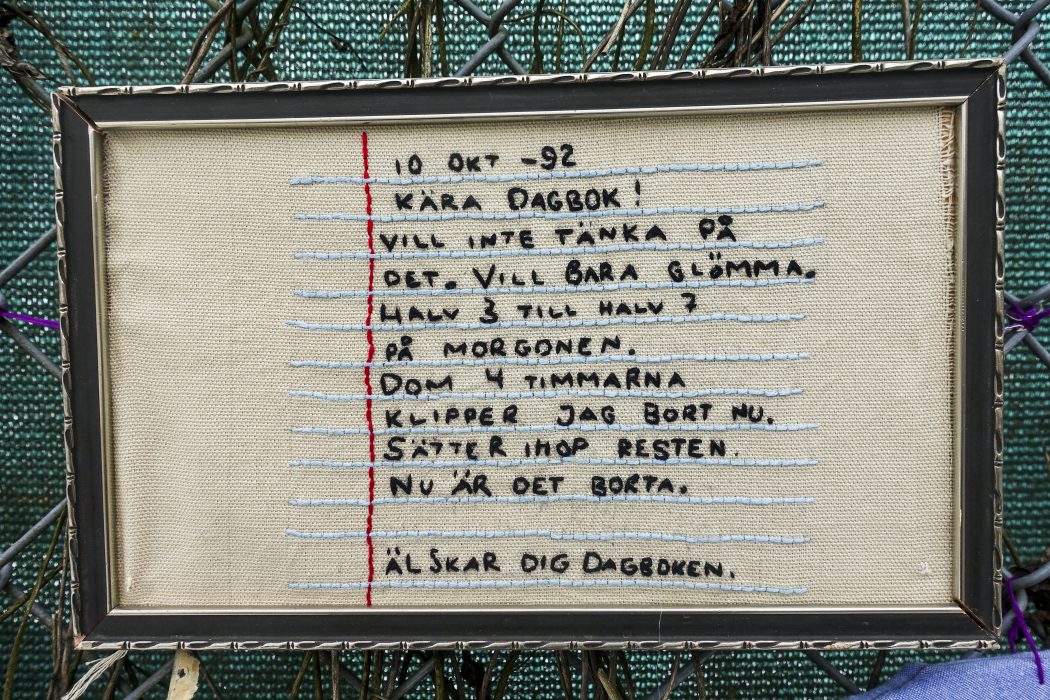 10 OKT -92
KÄRA DAGBOK!
VILL INTE TÄNKA PÅ
DET. VILL BARA GLÖMMA.
HALV 3 TILL HALV 7
PÅ MORGONEN.
DOM 4 TIMMARNA
KLIPPER JAG BORT NU.
SÄTTER IHOP RESTEN.
NU ÄR DET BORTA.
ÄLSKAR DIG DAGBOKEN.